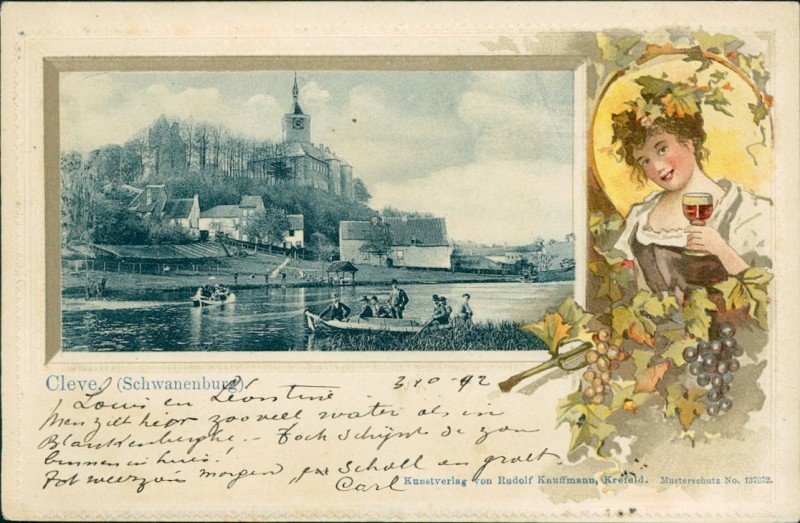 Cleve. (Schwanenburg).
Louis en Léontine
Men ziet hier zooveel water als in
Blankenberghe. - Toch schijnt de zon
binnen in huis!
Tot weerziens morgen en groet.
Carl
Kunstverlag von Rudolf Kauffmann, Krefeld. Musterschutz No. 137872.